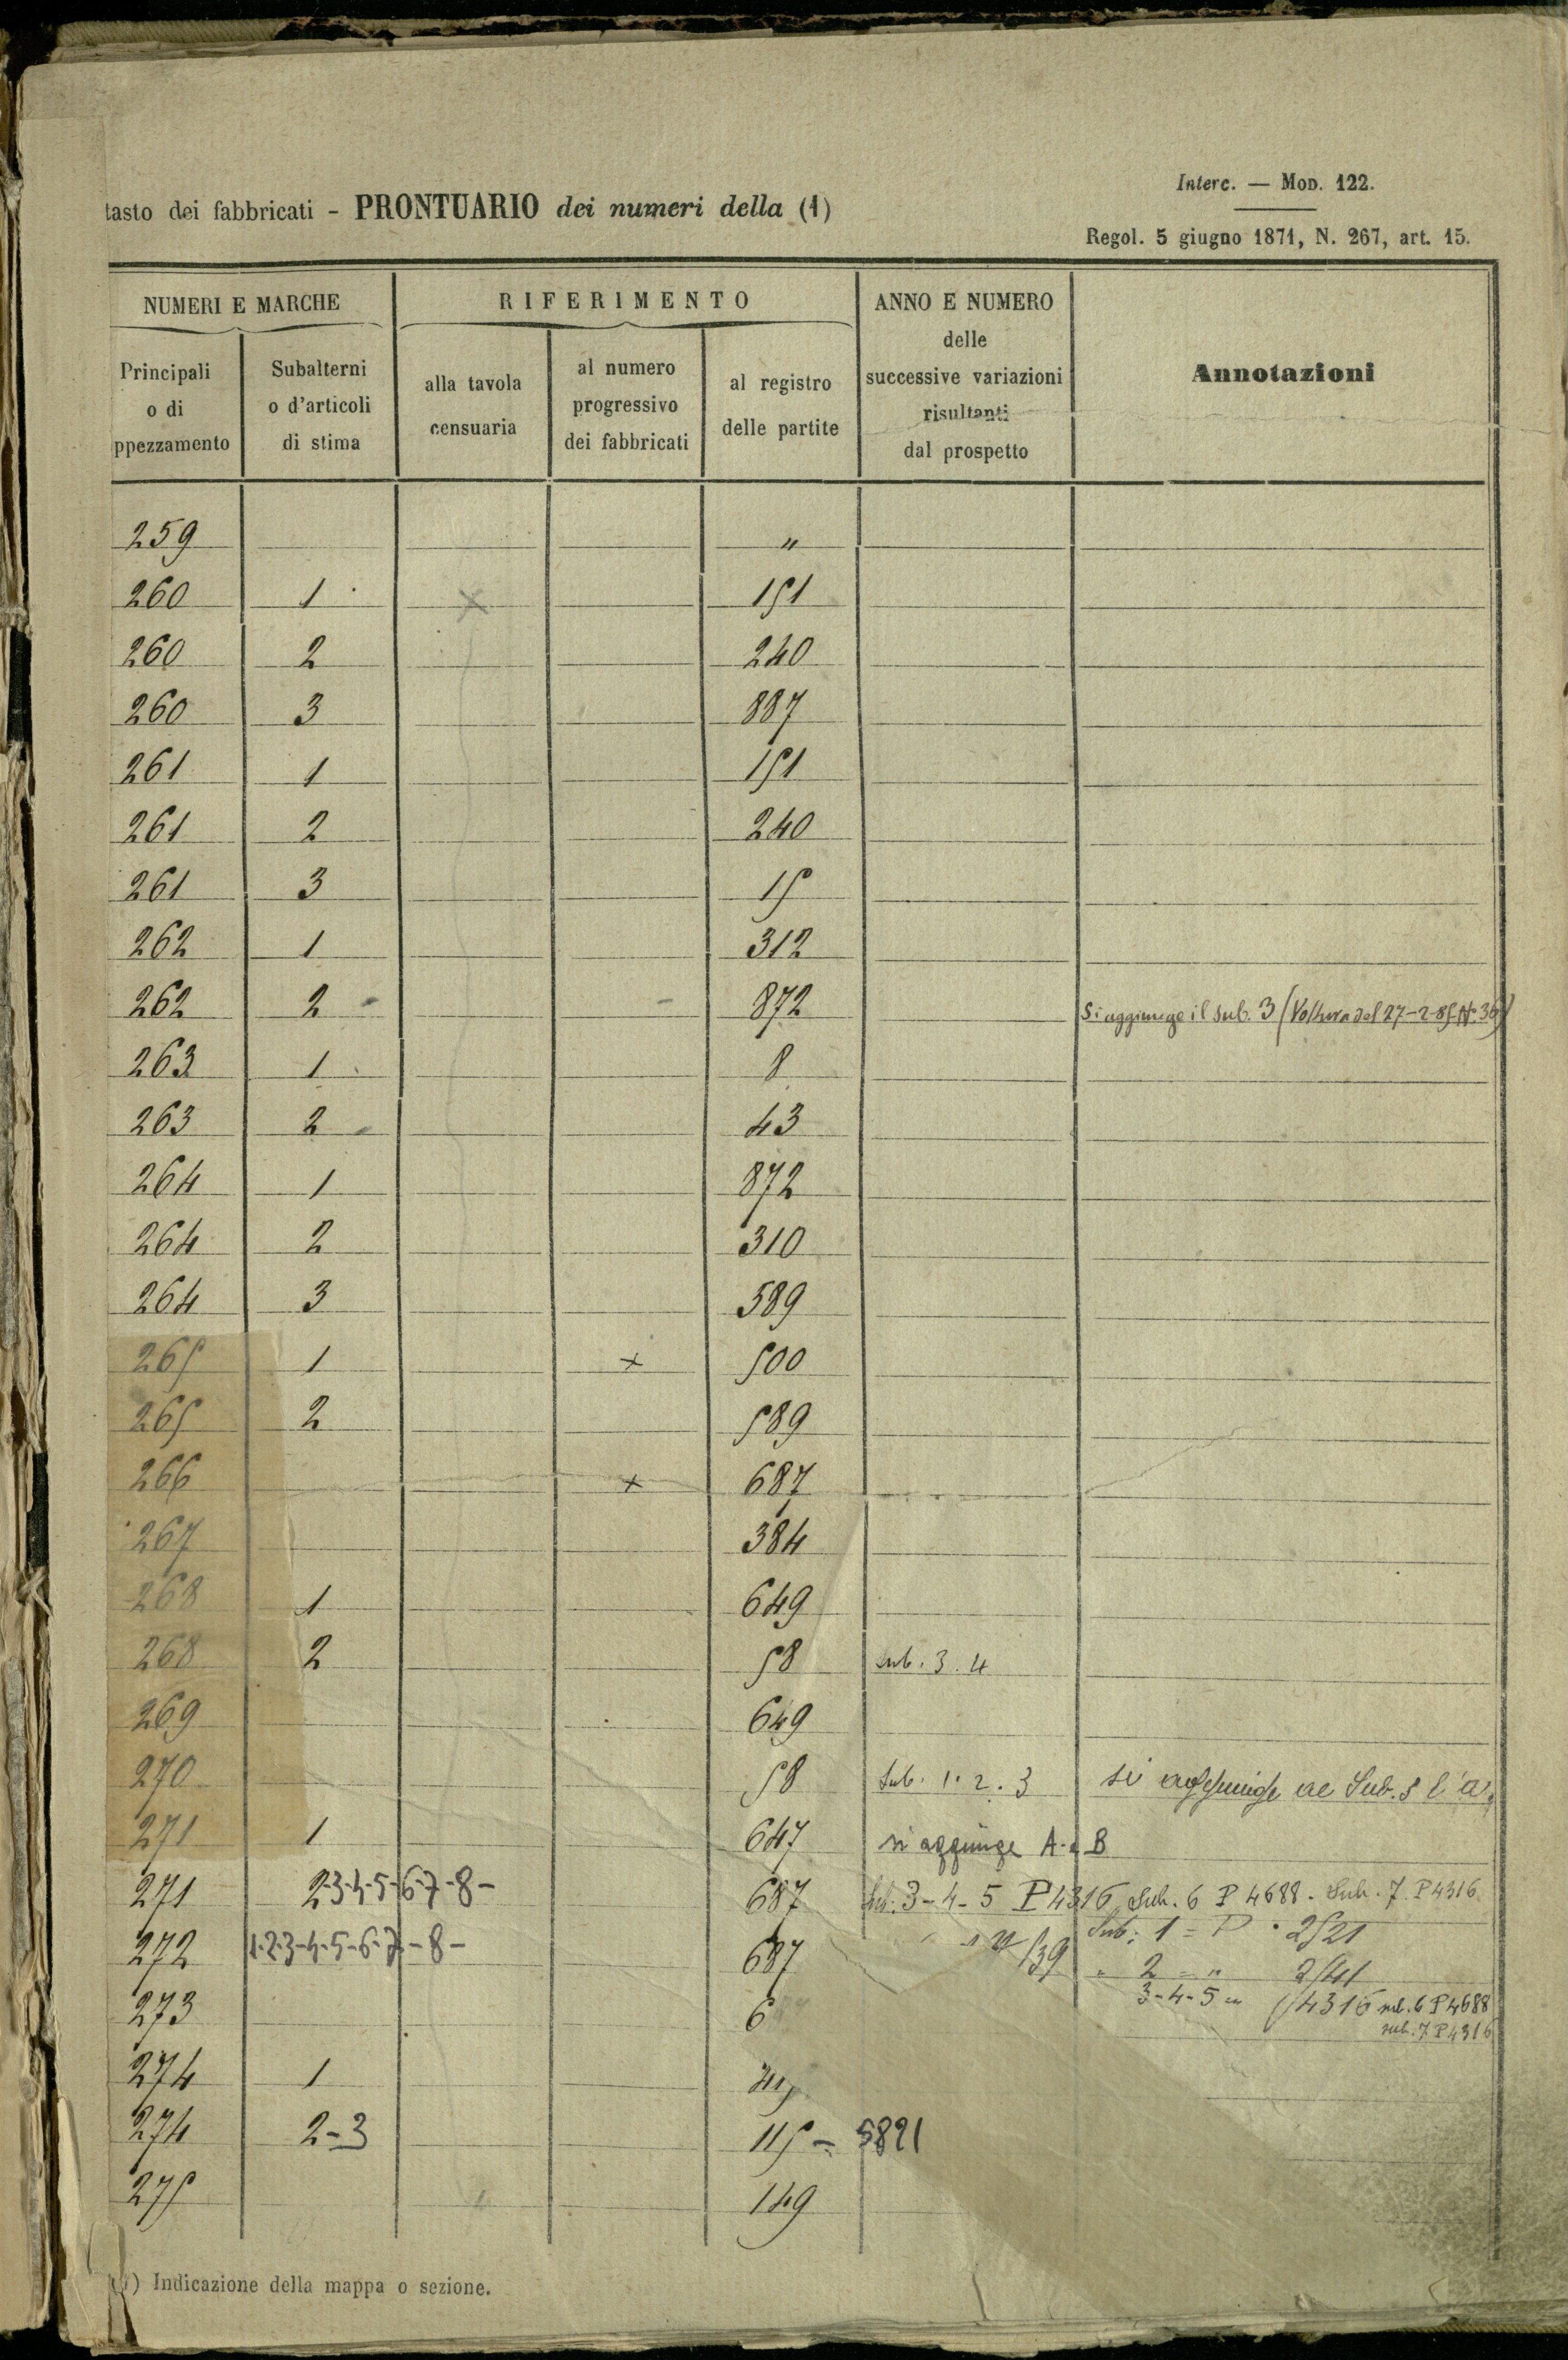 Interc. — Mod. 122.
tasto dei fabbricati - PRONTUARIO dei numeri della (1)
Regol. 5 giugno 1871, N. 267, art. 15.
NUMERI E MARCHE RIFERIMENTO ANNO E NUMERO delle successive variazioni risultanti dal prospetto Annotazioni
Principali o di ppezzamento Subalterni o d'articoli di stima alla tavola censuaria al numero progressivo dei fabbricati al registro delle partite
259 "
260 1 x 151
260 2 240
260 3 887
261 1 151
261 2 240
261 3 15
262 1 312
262 2 872 Si aggiunge il sub. 3 (Voltura del 27-2-85 N. 36)
263 1 8
263 2 43
264 1 872
264 2 310
264 3 589
265 1 x 500
265 2 589
266 x 687
267 384
268 1 649
268 2 58 sub. 3. 4
269 649
270 58 Sub. 1. 2. 3 si aggiunge
271 1 647 si aggiunge A. B
271 2-3-4-5-6-7-8- 687 Sub. 3-4-5 P 4316 Sub. 6 P 4688. Sub. 7. P 4316
272 1-2-3-4-5-6-7-8- 687 /39 Sub: 1 = P 2521
" 2 = "
273 6 3-4-5 4316 sub. 6 P 4688
sub. 7 P 4316
274 1
274 2-3 115 - 5821
275 149
) Indicazione della mappa o sezione.